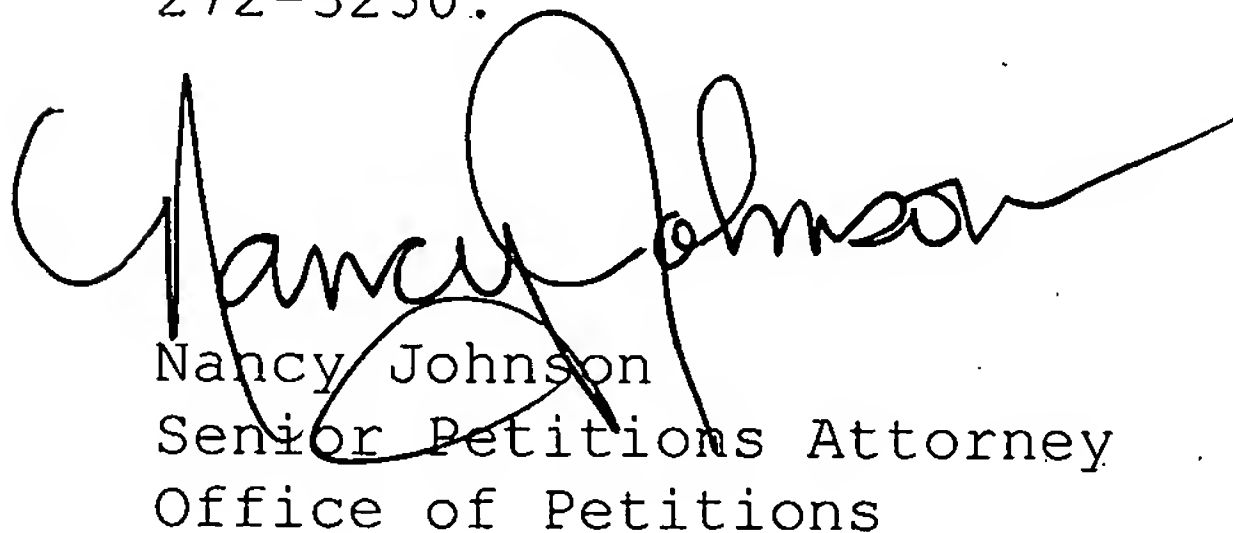 272-3230.
Nancy Johnson
Nancy Johnson
Senior Petitions Attorney
Office of Petitions